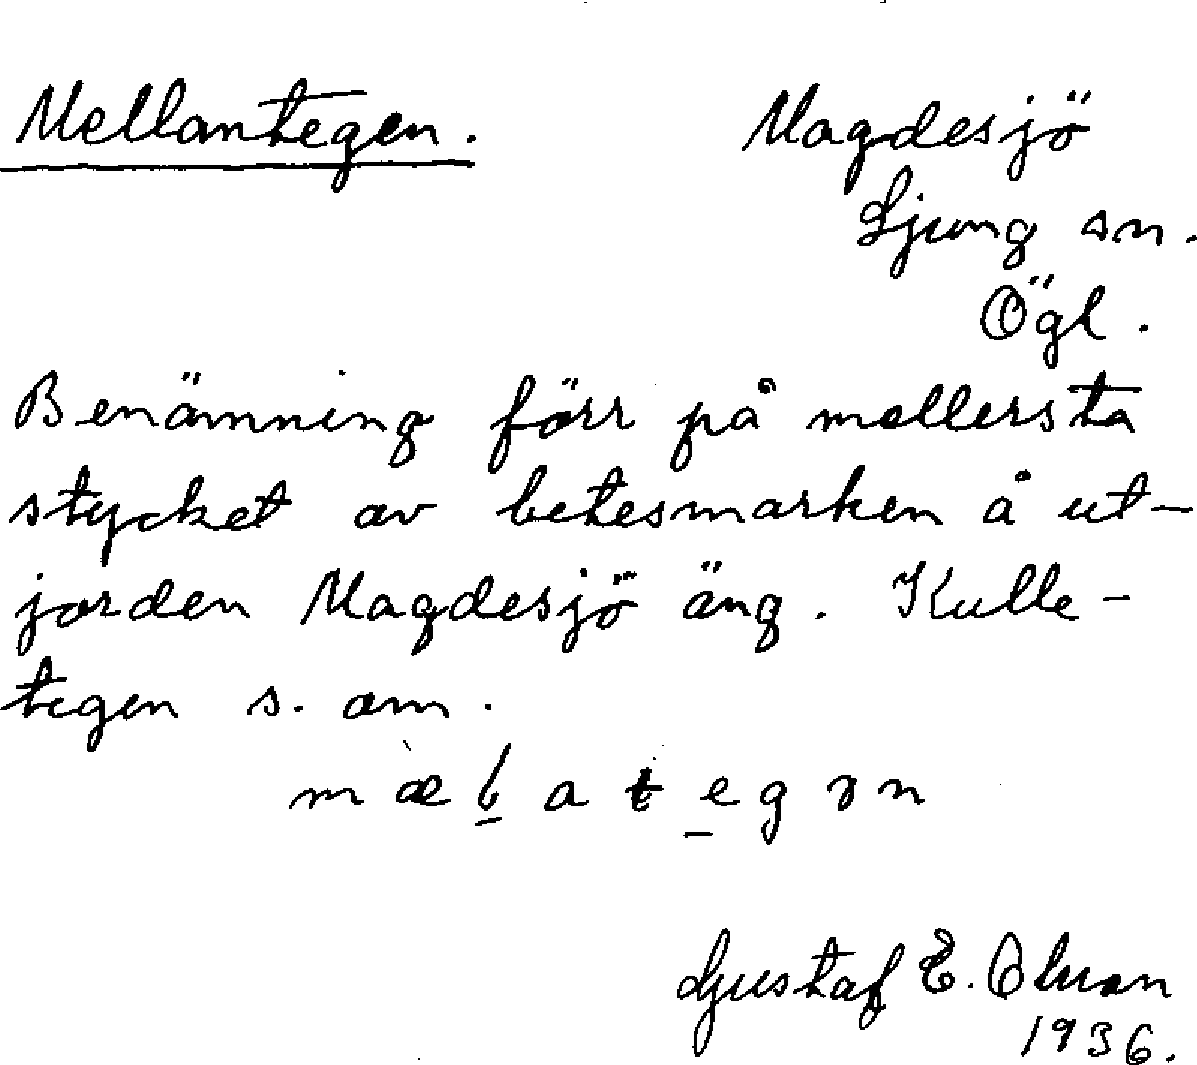 Mellantegen.
Magdesjö
Ljung sn.
Ögl.
Benämning förr på mellersta
stycket av betesmarken å ut-
jorden Magdesjö äng. Kulle-
tegen s. om.
Gustaf E.
1936.